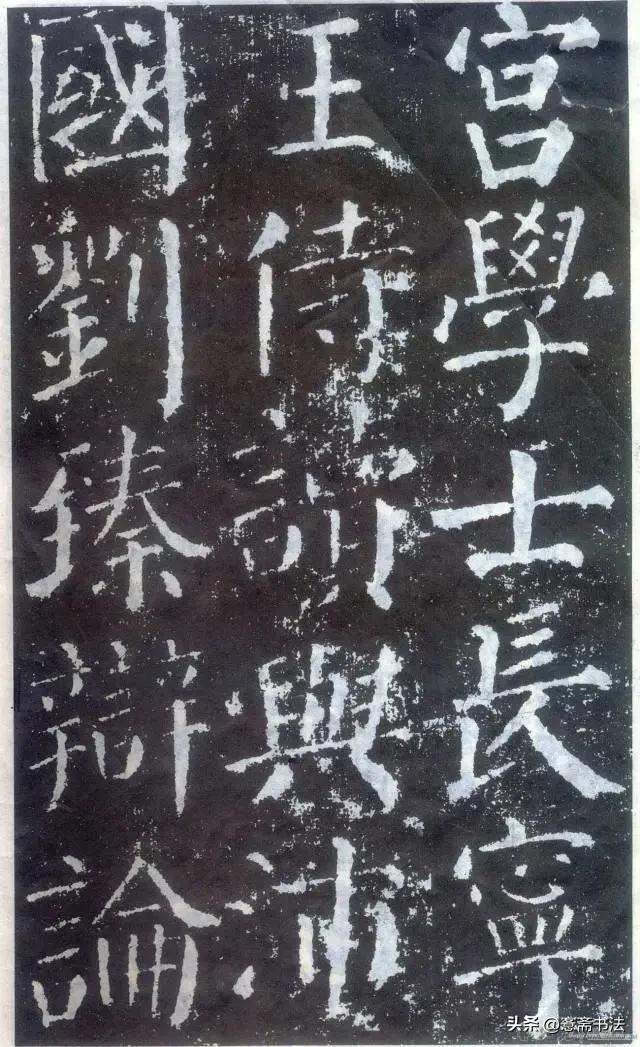 宮學士長寧
王侍讀與沛
國劉臻辯論
头条 @愙斋书法